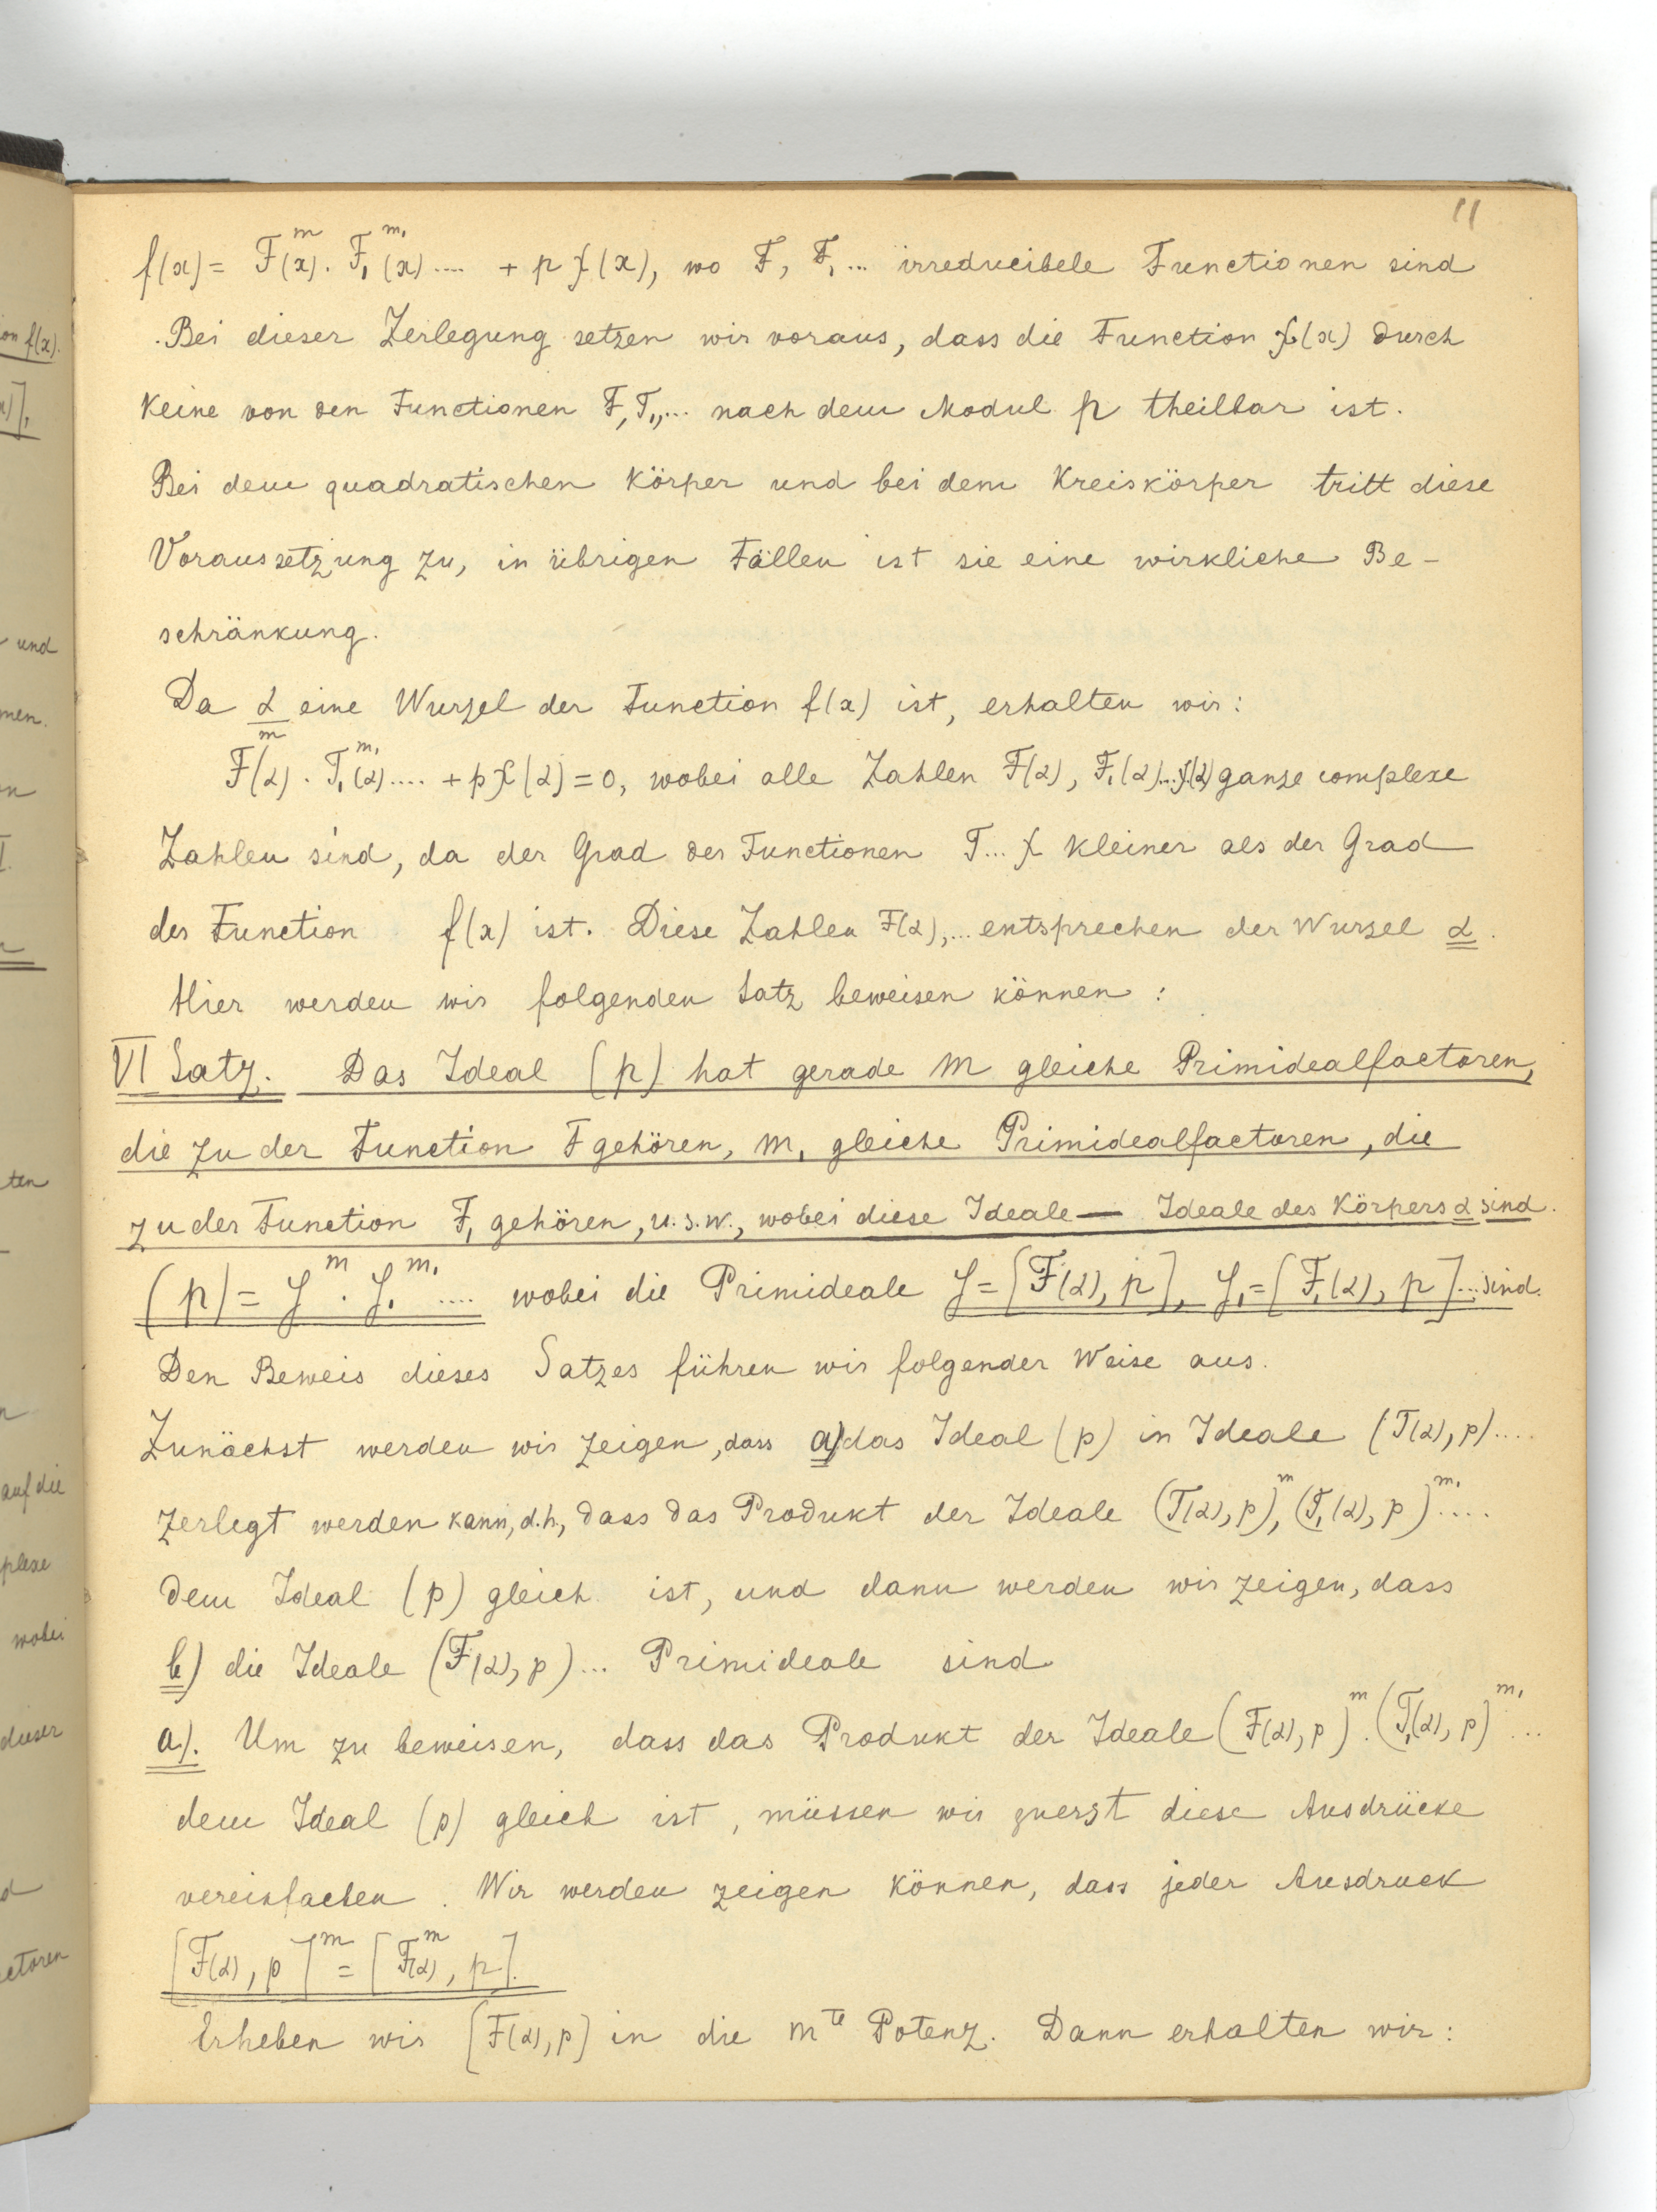 11
f(x) = F^m(x). F₁^{m₁}(x) .... + p χ(x), wo F, F₁... irreducibele Functionen sind
Bei dieser Zerlegung setzen wir voraus, dass die Function χ(x) durch
keine von den Functionen F, F₁,... nach dem Modul p theilbar ist.
Bei dem quadratischen Körper und bei dem Kreiskörper tritt diese
Voraussetzung zu, in übrigen Fällen ist sie eine wirkliche Be-
schränkung.
Da α eine Wurzel der Function f(x) ist, erhalten wir:
F^m(α) . F₁^{m₁}(α) .... + p χ(α) = 0, wobei alle Zahlen F(α), F₁(α)...χ(α) ganze complexe
Zahlen sind, da der Grad der Functionen F... χ kleiner als der Grad
der Function f(x) ist. Diese Zahlen F(α),... entsprechen der Wurzel α.
Hier werden wir folgenden Satz beweisen können :
VI Satz. Das Ideal (p) hat gerade m gleiche Primidealfactoren,
die zu der Function F gehören, m₁ gleiche Primidealfactoren, die
zu der Function F₁ gehören, u.s.w., wobei diese Ideale — Ideale des Körpers α sind.
(p) = y^m . y₁^{m₁} .... wobei die Primideale y = [F(α), p], y₁ = [F₁(α), p]... sind.
Den Beweis dieses Satzes führen wir folgender Weise aus.
Zunächst werden wir zeigen, dass a) das Ideal (p) in Ideale (F(α), p)....
zerlegt werden kann, d.h, dass das Produkt der Ideale (F(α), p)^m, (F₁(α), p)^{m₁}....
dem Ideal (p) gleich ist, und dann werden wir zeigen, dass
b) die Ideale (F(α), p)... Primideale sind
a). Um zu beweisen, dass das Produkt der Ideale (F(α), p)^m . (F₁(α), p)^{m₁}...
dem Ideal (p) gleich ist, müssen wir zuerst diese Ausdrücke
vereinfachen. Wir werden zeigen können, dass jeder Ausdruck
[F(α), p]^m = [F^m(α), p].
Erheben wir [F(α), p] in die m^te Potenz. Dann erhalten wir :
on f(x).
x)],
und
men.
n
I.
ten
n
auf die
plexe
wobei
dieser
d
ctoren